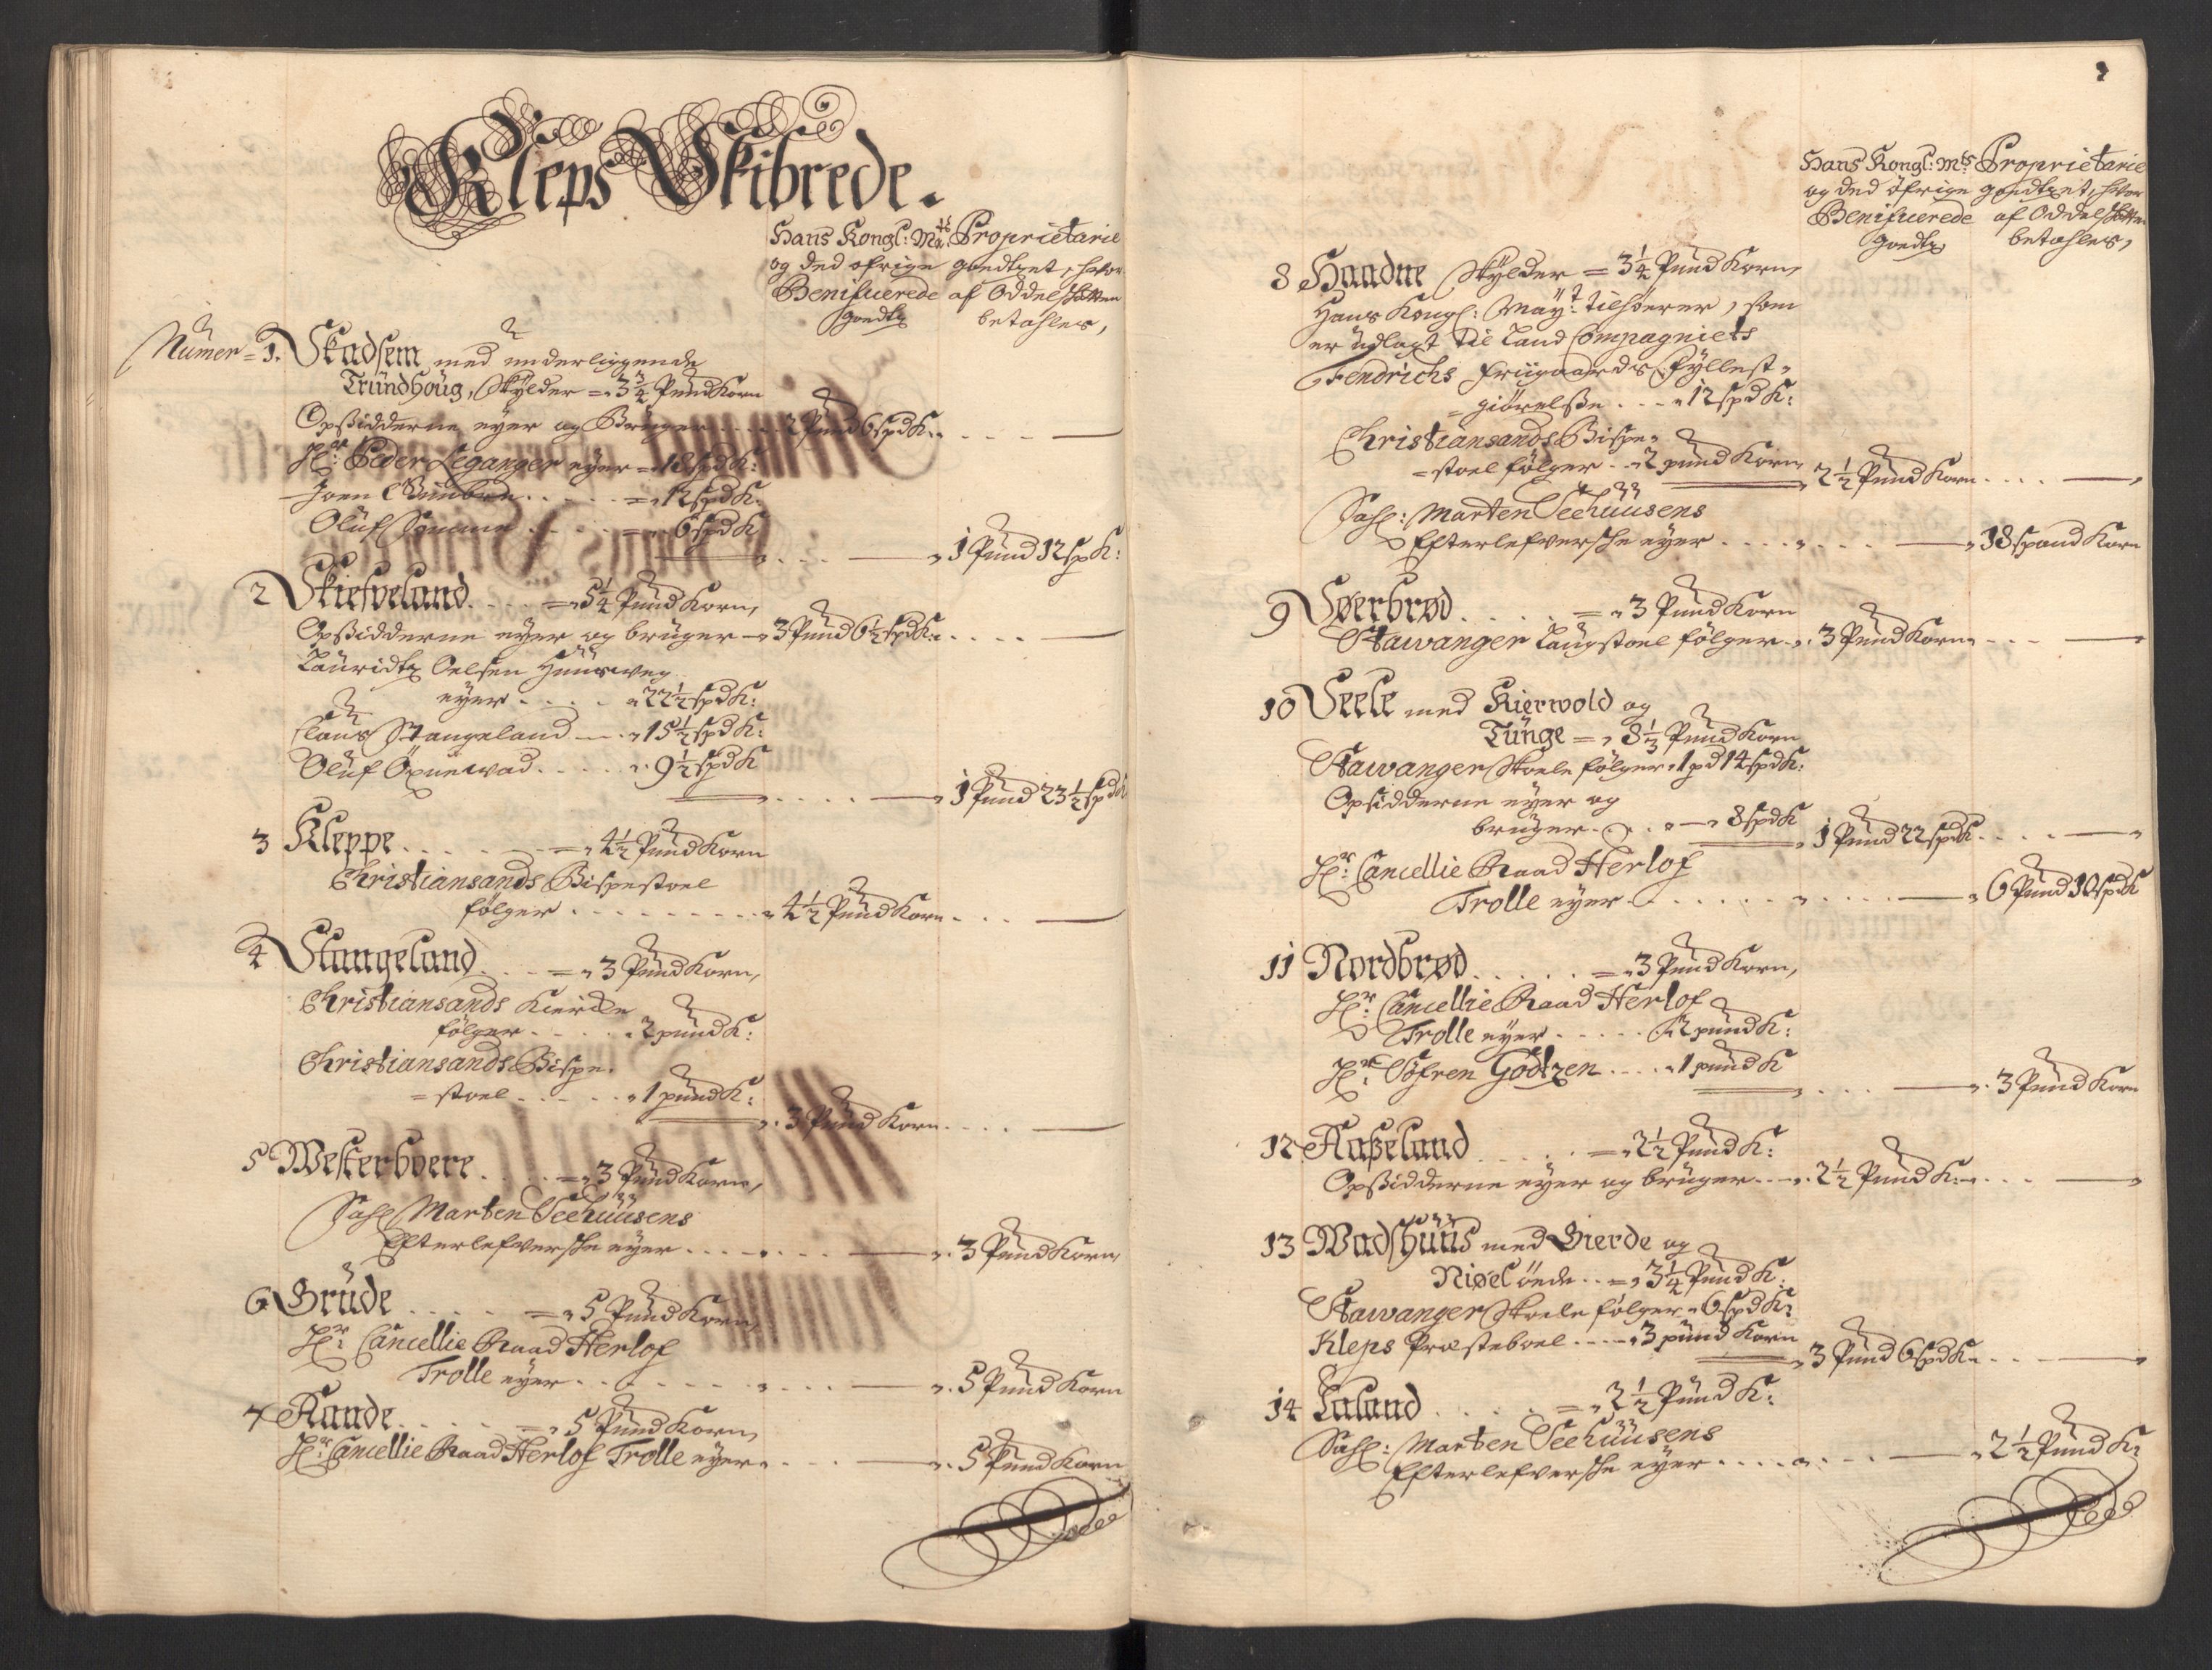 Kleps Skibrede.
Hans Kongl: Mats Proprietarie
og ded øfrige goedtzet, hvor
Benificerede af Oddelskatten
goedtz betahles,
Numer = 1. Skadsem med underliggende
Trundhoug, Skylder = 3 3/4 Pund Korn
Opsidderne eyer og Bruger .... 2 Pund 6 spd K: ....
Hr: Peder Leganger eyer = 18 spd K:
Joen ..... = 12 spd K:
Oluf Somme .... = 6 spd K
1 Pund 12 sp K:
2 Skiefveland .... = 5 1/4 Pund Korn,
Opsidderne eyer og bruger - 3 Pund 6 1/2 spd K: ....
Lauridtz Oelsen
eyer .... 22 1/2 spd K:
Claus Stangeland .... 15 1/2 spd K:
Oluf Opuewad .... 9 1/2 spd K
1 Pund 23 1/2 spd K
3 Kleppe .... = 4 1/2 Pund Korn
Christiansands Bispestoel
følger .... 4 1/2 Pund Korn ....
4 Stangeland .... = 3 Pund Korn,
Christiansands Kierke
følger .... 2 pund K:
Christiansands Bispe-
= stoel .... 1 pund K:
3 Pund Korn ....
5 Westerboere .... = 3 Pund Korn,
Sahl Marten Seehuusens
Efterlefversche eyer .... 3 Pund Korn,
6 Grude .... = 5 Pund Korn,
Hr: Cancellie Raad Herlof
Trolle eyer .... 5 Pund Korn
7 Rande .... = 5 Pund Korn,
Hr: Cancellie Raad Herlof Trolle eyer .... 5 Pund Korn
Hans Kongl: Mts Proprietarie
og ded øfrige goedtzet, hvor
Benificerede af Oddelskatten
goedtz betahles,
8 Haadne Skylder = 3 1/4 Pund Korn,
Hans Kongl: Mayt: tilhörer, som
er udlagt til Land Compagniets
Fendrichs friigaards fyllest-
= giörelsse .... 12 spd K:
Christiansands Bispe-
= stoel følger .. 2 pund Korn, 2 1/2 Pund Korn ....
Sahl: Marten Seehuusens
Efterlefversche eyer .... 18 spand Korn
9 Søerbrød .... = 3 Pund Korn
Stawanger Laugstoel følger .. 3 Pund Korn ....
10 Seele med Kierwold og
Tunge = 8 1/3 Pund Korn
Stawanger Skoele følger 1 pd 14 spd K:
Opsidderne eyer og
bruger .... 8 spd K 1 Pund 22 spd K ....
Hr: Cancellie Raad Herlof
Trolle eyer .... 6 Pund 10 spd K
11 Nordbrød .... = 3 Pund Korn,
Hr: Cancellie Raad Herlof
Trolle eyer .... 2 pund K:
Hr: Söfren Godtzen .... 1 pund K
3 Pund Korn
12 Raßeland .... = 2 1/2 Pund K:
Opsidderne eyer og bruger .... 2 1/2 Pund K: ....
13 Wadshuus med Gierde og
Niøel öede .. = 3 1/4 Pund K:
Stawanger Skoele følger 6 spd K:
Kleps Præsteboel .... 3 pund Korn
3 Pund 6 spd K ....
14 Laland .... = 2 1/2 Pund K:
Sahl: Marten Seehuusens
Efterlefversche eyer .... 2 1/2 Pund K: